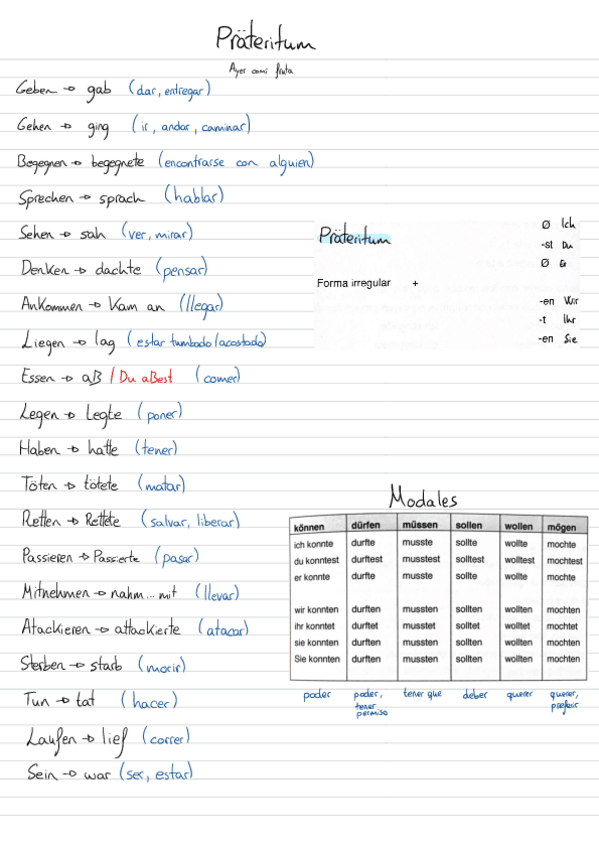 Präteritum
Ayer comí fruta
Geben → gab (dar, entregar)
Gehen → ging (ir, andar, caminar)
Begegnen → begegnete (encontrarse con alguien)
Sprechen → sprach (hablar)
Sehen → sah (ver, mirar)
Denken → dachte (pensar)
Ankommen → Kam an (llegar)
Liegen → lag (estar tumbado/acostado)
Essen → aß / Du aßest (comer)
Legen → Legte (poner)
Haben → hatte (tener)
Töten → tötete (matar)
Retten → Rettete (salvar, liberar)
Passieren → Passierte (pasar)
Mitnehmen → nahm ... mit (llevar)
Atackieren → attackierte (atacar)
Sterben → starb (morir)
Tun → tat (hacer)
Laufen → lief (correr)
Sein → war (ser, estar)
Präteritum
Forma irregular +
Ø Ich
-st Du
Ø Er
-en Wir
-t Ihr
-en Sie
Modales
können dürfen müssen sollen wollen mögen
ich konnte durfte musste sollte wollte mochte
du konntest durftest musstest solltest wolltest mochtest
er konnte durfte musste sollte wollte mochte
wir konnten durften mussten sollten wollten mochten
ihr konntet durftet musstet solltet wolltet mochtet
sie konnten durften mussten sollten wollten mochten
Sie konnten durften mussten sollten wollten mochten
poder poder, tener permiso tener que deber querer querer, preferir